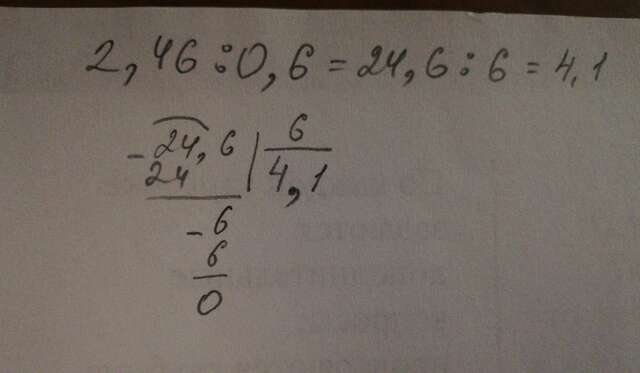 2,46:0,6=24,6:6=4,1
-24,6|6
24 4,1
-6
6
0